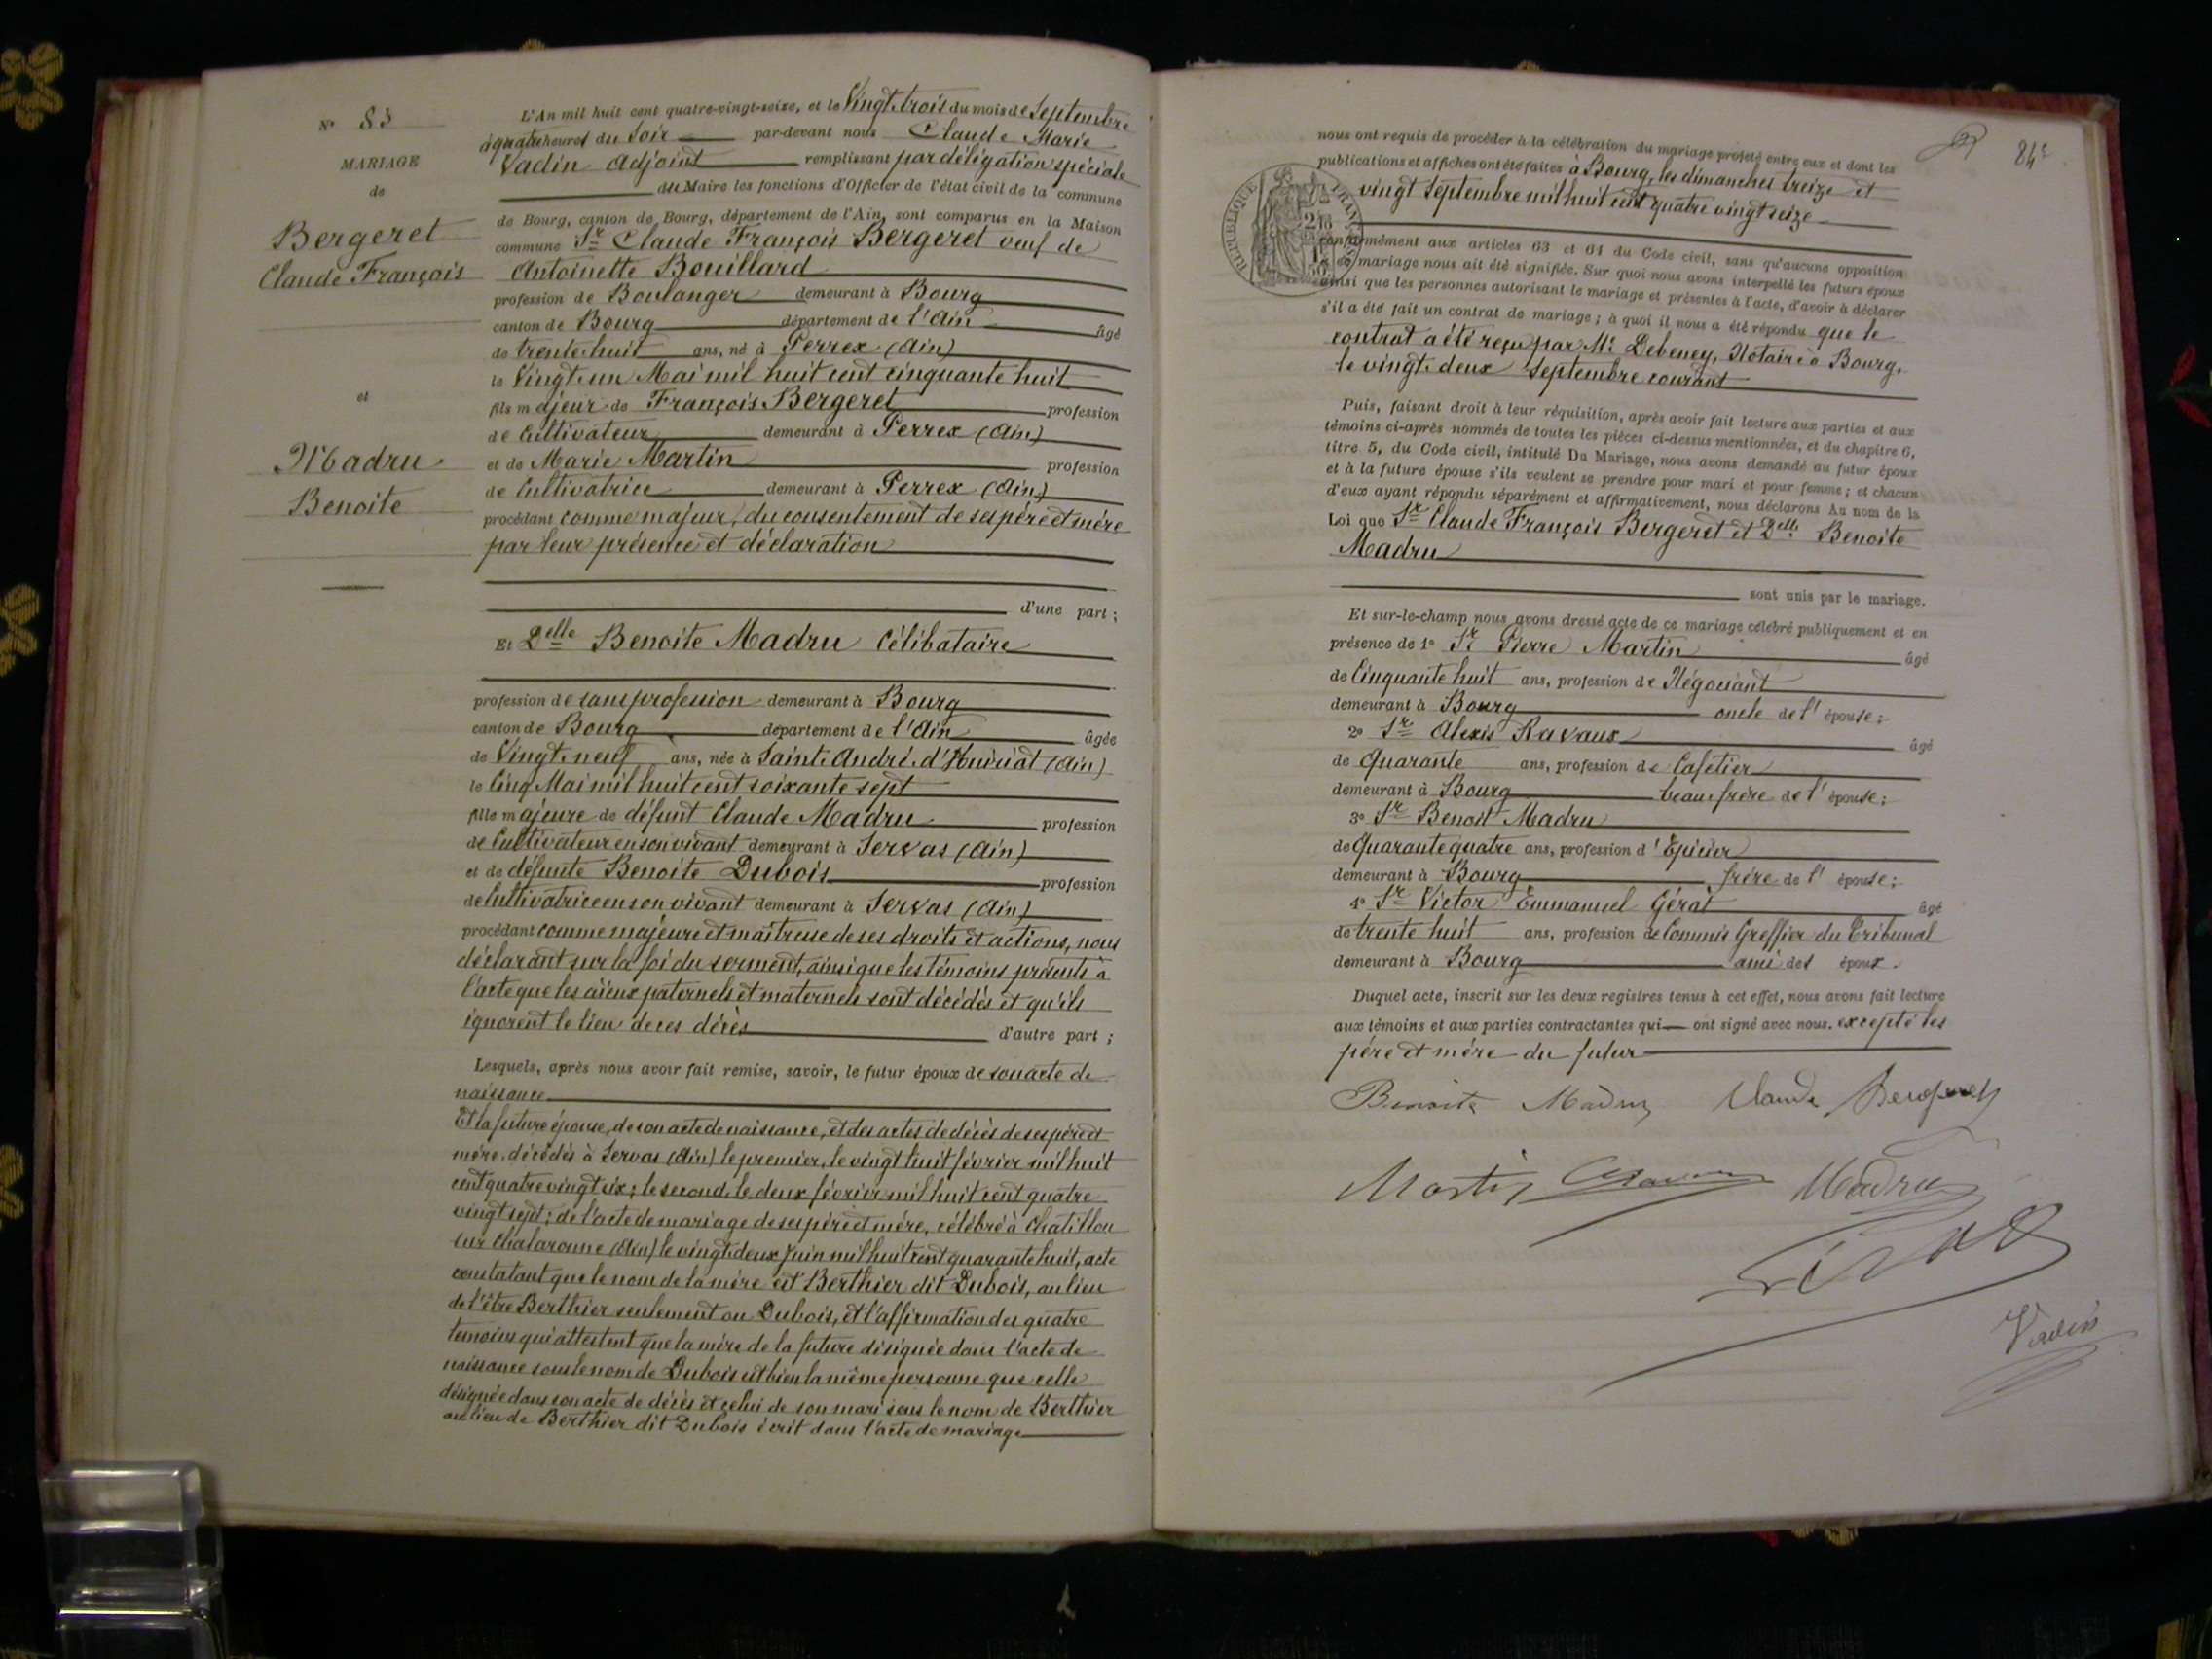 N° 83
MARIAGE
de
Bergeret
Claude François
et
Madru
Benoite
L'An mil huit cent quatre-vingt-seize, et le Vingt-trois du mois de Septembre
à quatre heures du Soir par-devant nous Claude Marie
Vadin Adjoint remplissant par délégation spéciale
du Maire les fonctions d'Officier de l'état civil de la commune
de Bourg, canton de Bourg, département de l'Ain, sont comparus en la Maison
commune Sr Claude François Bergeret veuf de
Antoinette Bouillard
profession de Boulanger demeurant à Bourg
canton de Bourg département de l'Ain âgé
de trente huit ans, né à Perrex (Ain)
le Vingt un Mai mil huit cent cinquante huit
fils majeur de François Bergeret profession
de Cultivateur demeurant à Perrex (Ain)
et de Marie Martin profession
de Cultivatrice demeurant à Perrex (Ain)
procédant comme majeur, du consentement de ses père et mère
par leur présence et déclaration
d'une part ;
Et Delle Benoite Madru Célibataire
profession de sans profession demeurant à Bourg
canton de Bourg département de l'Ain âgée
de Vingt-neuf ans, née à Saint-André-d'Huiriat (Ain)
le Cinq Mai mil huit cent soixante sept
fille majeure de défunt Claude Madru profession
de Cultivateur en son vivant demeurant à Servas (Ain)
et de défunte Benoite Dubois profession
de Cultivatrice en son vivant demeurant à Servas (Ain)
procédant comme majeure et maîtresse de ses droits et actions, nous
déclarant sur la foi du serment, ainsi que les témoins présents à
l'acte que les aïeux paternels et maternels sont décédés et qu'ils
ignorent le lieu de ces décès d'autre part ;
Lesquels, après nous avoir fait remise, savoir, le futur époux de son acte de
naissance
Et la future épouse, de son acte de naissance, et des actes de décès de ses père et
mère décédés à Servas (Ain) le premier, le vingt huit février mil huit
cent quatre vingt six ; le second le deux février mil huit cent quatre
vingt sept ; de l'acte de mariage de ses père et mère, célébré à Chatillon
sur Chalaronne (Ain) le vingt-deux Juin mil huit cent quarante huit, acte
constatant que le nom de la mère est Berthier dit Dubois, au lieu
de l'être Berthier seulement ou Dubois, et l'affirmation des quatre
temoins qui attestent que la mère de la future désignée dans l'acte de
naissance sous le nom de Dubois est bien la même personne que celle
désignée dans son acte de décès et celui de son mari sous le nom de Berthier
au lieu de Berthier dit Dubois écrit dans l'acte de mariage
84e
nous ont requis de procéder à la célébration du mariage projeté entre eux et dont les
publications et affiches ont été faites à Bourg, les dimanches treize et
vingt Septembre mil huit cent quatre vingt seize
RÉPUBLIQUE FRANÇAISE
conformément aux articles 63 et 64 du Code civil, sans qu'aucune opposition
à ce mariage nous ait été signifiée. Sur quoi nous avons interpellé les futurs époux
ainsi que les personnes autorisant le mariage et présentes à l'acte, d'avoir à déclarer
s'il a été fait un contrat de mariage ; à quoi il nous a été répondu que le
contrat a été reçu par Me Debeney, Notaire à Bourg,
le vingt-deux Septembre courant
Puis, faisant droit à leur réquisition, après avoir fait lecture aux parties et aux
témoins ci-après nommés de toutes les pièces ci-dessus mentionnées, et du chapitre 6,
titre 5, du Code civil, intitulé Du Mariage, nous avons demandé au futur époux
et à la future épouse s'ils veulent se prendre pour mari et pour femme ; et chacun
d'eux ayant répondu séparément et affirmativement, nous déclarons Au nom de la
Loi que Sr Claude François Bergeret et Delle Benoite
Madru
sont unis par le mariage.
Et sur-le-champ nous avons dressé acte de ce mariage célébré publiquement et en
présence de 1° Sr Pierre Martin âgé
de Cinquante huit ans, profession de Négociant
demeurant à Bourg oncle de l'épouse ;
2° Sr Alexis Ravaux âgé
de Quarante ans, profession de Cafetier
demeurant à Bourg beau frère de l'épouse ;
3° Sr Benoit Madru
de Quarante quatre ans, profession d'Epicier
demeurant à Bourg frère de l'épouse ;
4° Sr Victor Emmanuel Gérat âgé
de trente huit ans, profession de Commis Greffier du Tribunal
demeurant à Bourg ami des époux.
Duquel acte, inscrit sur les deux registres tenus à cet effet, nous avons fait lecture
aux témoins et aux parties contractantes qui ont signé avec nous. excepté les
père et mère du futur
Benoite Madru Claude Bergeret
Martin Madru
Vadin